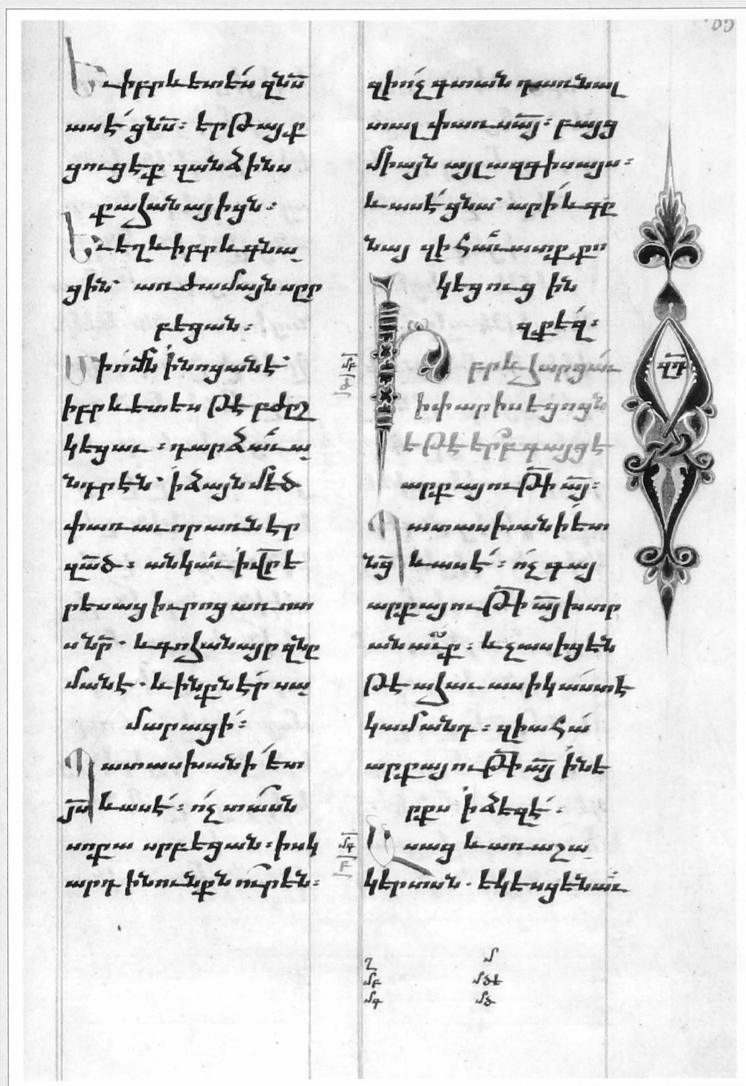 Եւ իբրև ետես զնս
ասէ ցնս։ երթայք
ցուցէք զանձինս
քահանայիցն։
Եւ եղև իբրև գնա
ցին՝ առժամայն սըր
բեցան։
Մի ոմն ի նոցանէ՝
իբրև ետես թէ բժշ
կեցաւ։ դարձաւ ա
նդրէն՝ ի ձայն մեծ
փառաւոր առնէր
զած։ անկաւ ի վր ե
րեսաց իւրոց առ ոտս
նր. և գոհանայր զնը
մանէ. և ինքն էր սա
մարացի։
Պատասխանի ետ
յս և ասէ։ ոչ տասն
սոքա սրբեցան։ իսկ
արդ ինունքն ուր են։
զի ոչ գտան դառնալ
տալ փառս այ։ բայց
միայն այլազգիս այս։
և ասէ ցնա՝ արի և գը
նայ զի հաւատք քո
կեցուցին
զքեզ։
Իբրև հարցաւ
ի փարիսեցոցն
եթէ երբ գայցէ
արքայութի այ։
Պատասխանի ետ
նց և ասէ։ ոչ գայ
արքայութի այ խտր
անաւք։ և չասիցեն
թէ ահաւասիկ աստ է
կամ անդ։ զի ահա
արքայութի այ ի նե
րքս ի ձեզ է։
Ասաց և առ աշա
կերտսն. եկեսցեն աւ